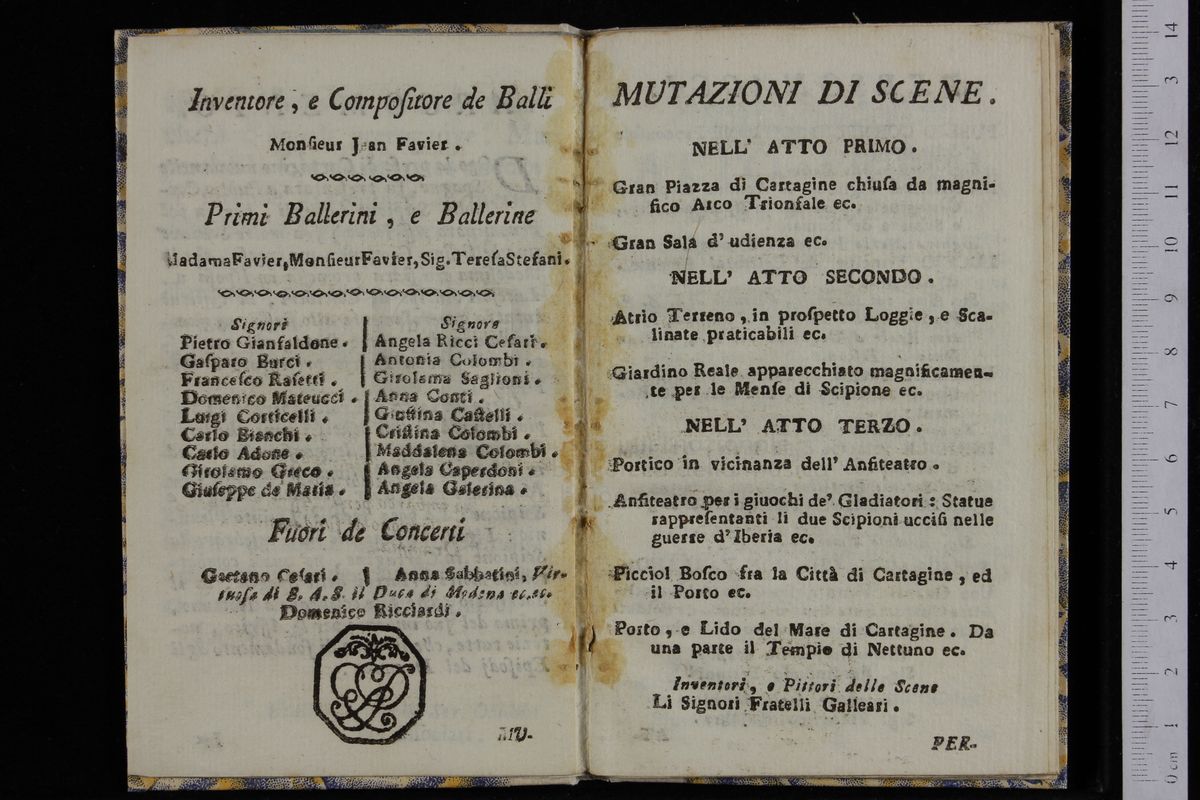 Inventore, e Compoſitore de Balli
Monſieur Jean Favier.
Primi Ballerini, e Ballerine
Madama Favier, Monſieur Favier, Sig. Tereſa Stefani.
Signori
Pietro Gianfaldone.
Gaſparo Burci.
Franceſco Raſetti.
Domenico Mateucci.
Luigi Corticelli.
Carlo Bianchi.
Carlo Adone.
Girolamo Greco.
Giuſeppe de Maria.
Signore
Angela Ricci Ceſari.
Antonia Colombi.
Girolama Saglioni.
Anna Conti.
Giuſtina Caſtelli.
Criſtina Colombi.
Maddalena Colombi.
Angela Caperdoni.
Angela Galerina.
Fuori de Concerti
Gaetano Ceſari. | Anna Sabbatini, Vir-
tuoſa di S. A. S. il Duca di Modena ec. ec.
Domenico Ricciardi.
MU-
MUTAZIONI DI SCENE.
NELL' ATTO PRIMO.
Gran Piazza di Cartagine chiuſa da magni-
fico Arco Trionfale ec.
Gran Sala d' udienza ec.
NELL' ATTO SECONDO.
Atrio Terreno, in proſpetto Loggie, e Sca-
linate praticabili ec.
Giardino Reale apparecchiato magnificamen-
te per le Menſe di Scipione ec.
NELL' ATTO TERZO.
Portico in vicinanza dell' Anfiteatro.
Anfiteatro per i giuochi de' Gladiatori: Statue
rappreſentanti li due Scipioni ucciſi nelle
guerre d' Iberia ec.
Picciol Boſco fra la Città di Cartagine, ed
il Porto ec.
Porto, e Lido del Mare di Cartagine. Da
una parte il Tempio di Nettuno ec.
Inventori, e Pittori delle Scene
Li Signori Fratelli Galleari.
PER-
0 cm 1 2 3 4 5 6 7 8 9 10 11 12 3 14